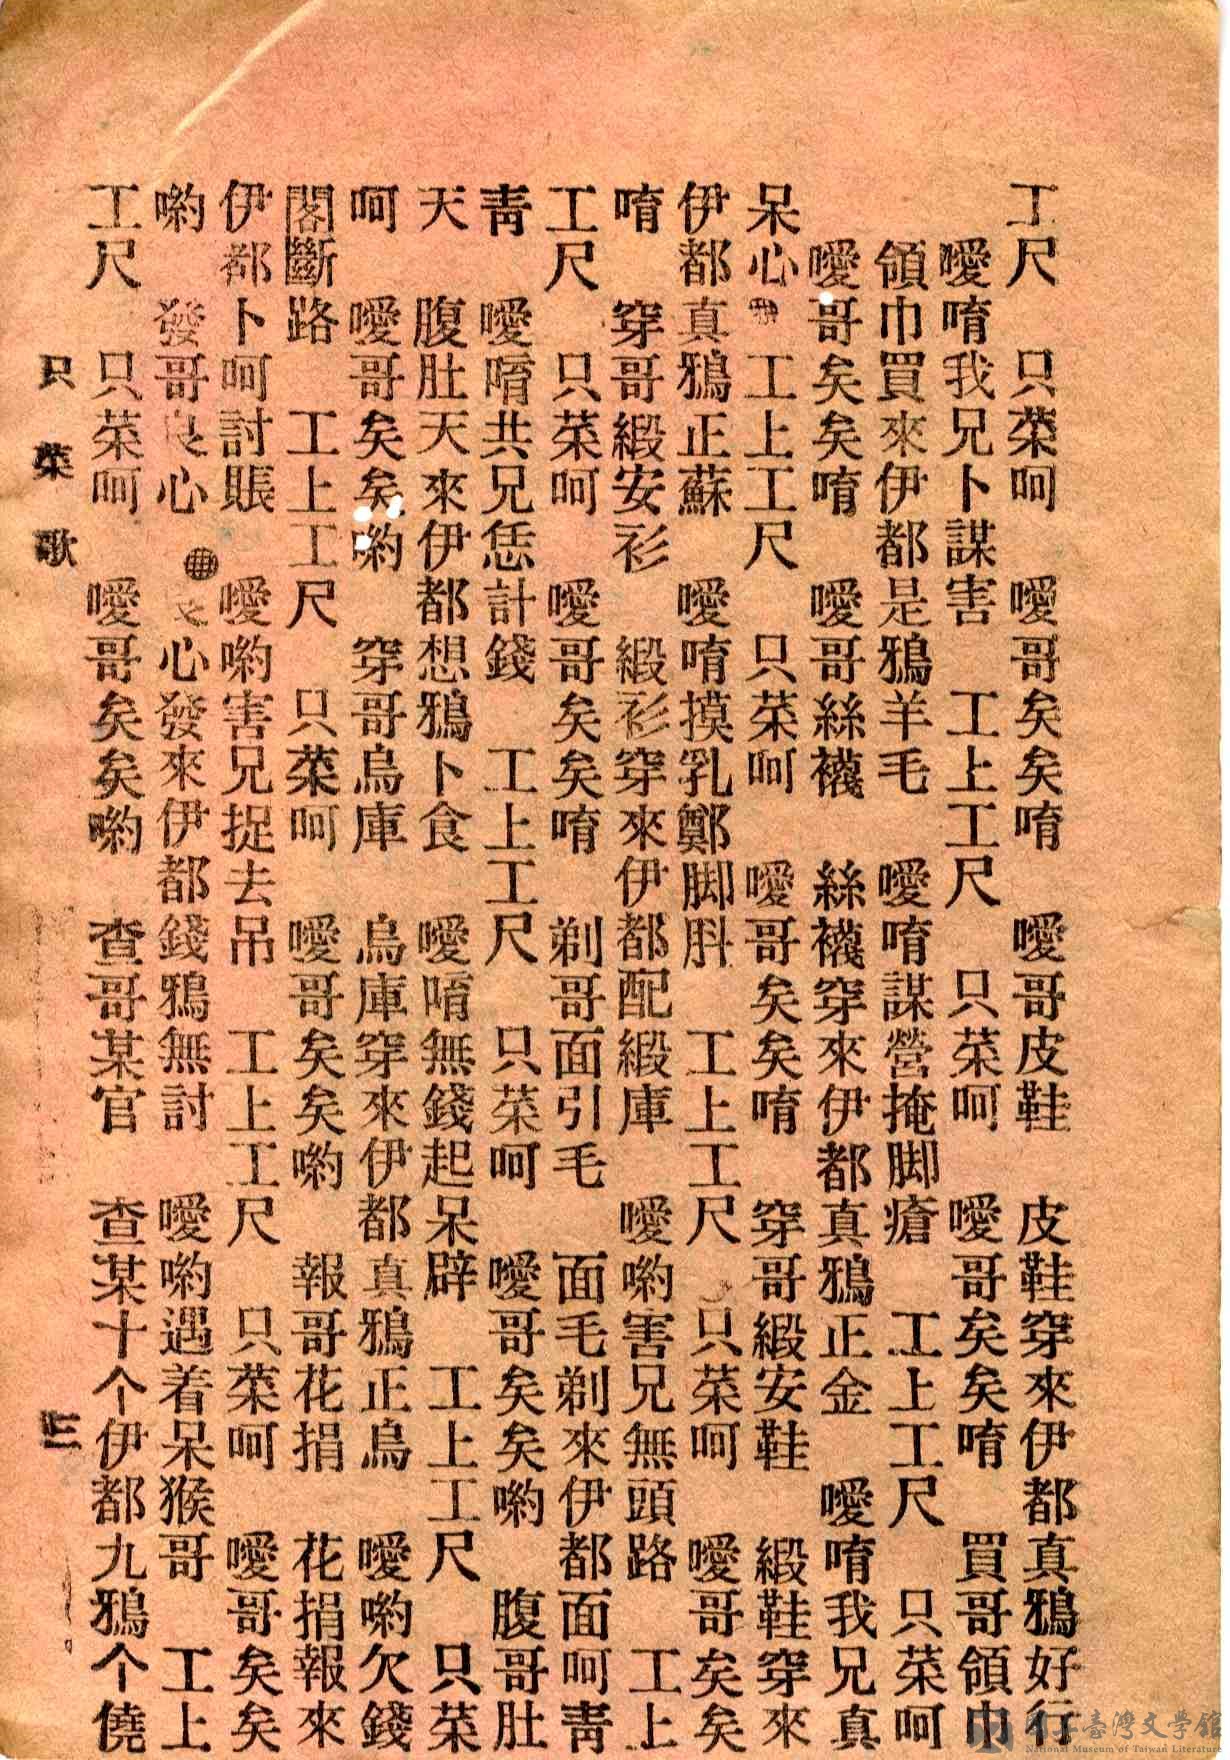 工尺　只菜呵　噯哥矣矣唷　噯哥皮鞋　皮鞋穿來伊都真鴉好行
噯唷我兄卜謀害　工上工尺　只菜呵　噯哥矣矣唷　買哥領巾
領巾買來伊都是鴉羊毛　噯唷謀營掩脚瘡　工上工尺　只菜呵
噯哥矣矣唷　噯哥絲襪　絲襪穿來伊都真鴉正金　噯唷我兄真
呆心　工上工尺　只菜呵　噯哥矣矣唷　穿哥緞安鞋　緞鞋穿來
伊都真鴉正蘇　噯唷摸乳鄭脚　工上工尺　只菜呵　噯哥矣矣
唷　穿哥緞安衫　緞衫穿來伊都配緞庫　噯喲害兄無頭路　工上
工尺　只菜呵　噯哥矣矣唷　剃哥面引毛　面毛剃來伊都面呵青
青　噯唷共兄恁計錢　工上工尺　只菜呵　噯哥矣矣喲　腹哥肚
天　腹肚天來伊都想鴉卜食　噯唷無錢起呆辟　工上工尺　只菜
呵　噯哥矣矣喲　穿哥烏庫　烏庫穿來伊都真鴉正烏　噯喲欠錢
閣斷路　工上工尺　只菜呵　噯哥矣矣喲　報哥花捐　花捐報來
伊都卜呵討賬　噯喲害兄捉去吊　工上工尺　只菜呵　噯哥矣矣
喲　發哥良心　良心發來伊都錢鴉無討　噯喲遇着呆猴哥　工上
工尺　只菜呵　噯哥矣矣喲　查哥某官　查某十个伊都九鴉个僥
只菜歌　三
國立臺灣文學館
National Museum of Taiwan Literature